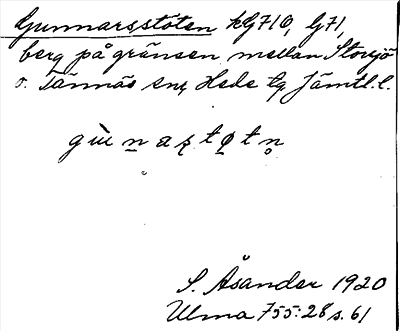 Gunnarsstöten kG710, G71,
berg på gränsen mellan Storsjö
o. Tännäs snr Hede tg Jämtl. l.
S. Åsander 1920
Ulma 755:28 s. 61